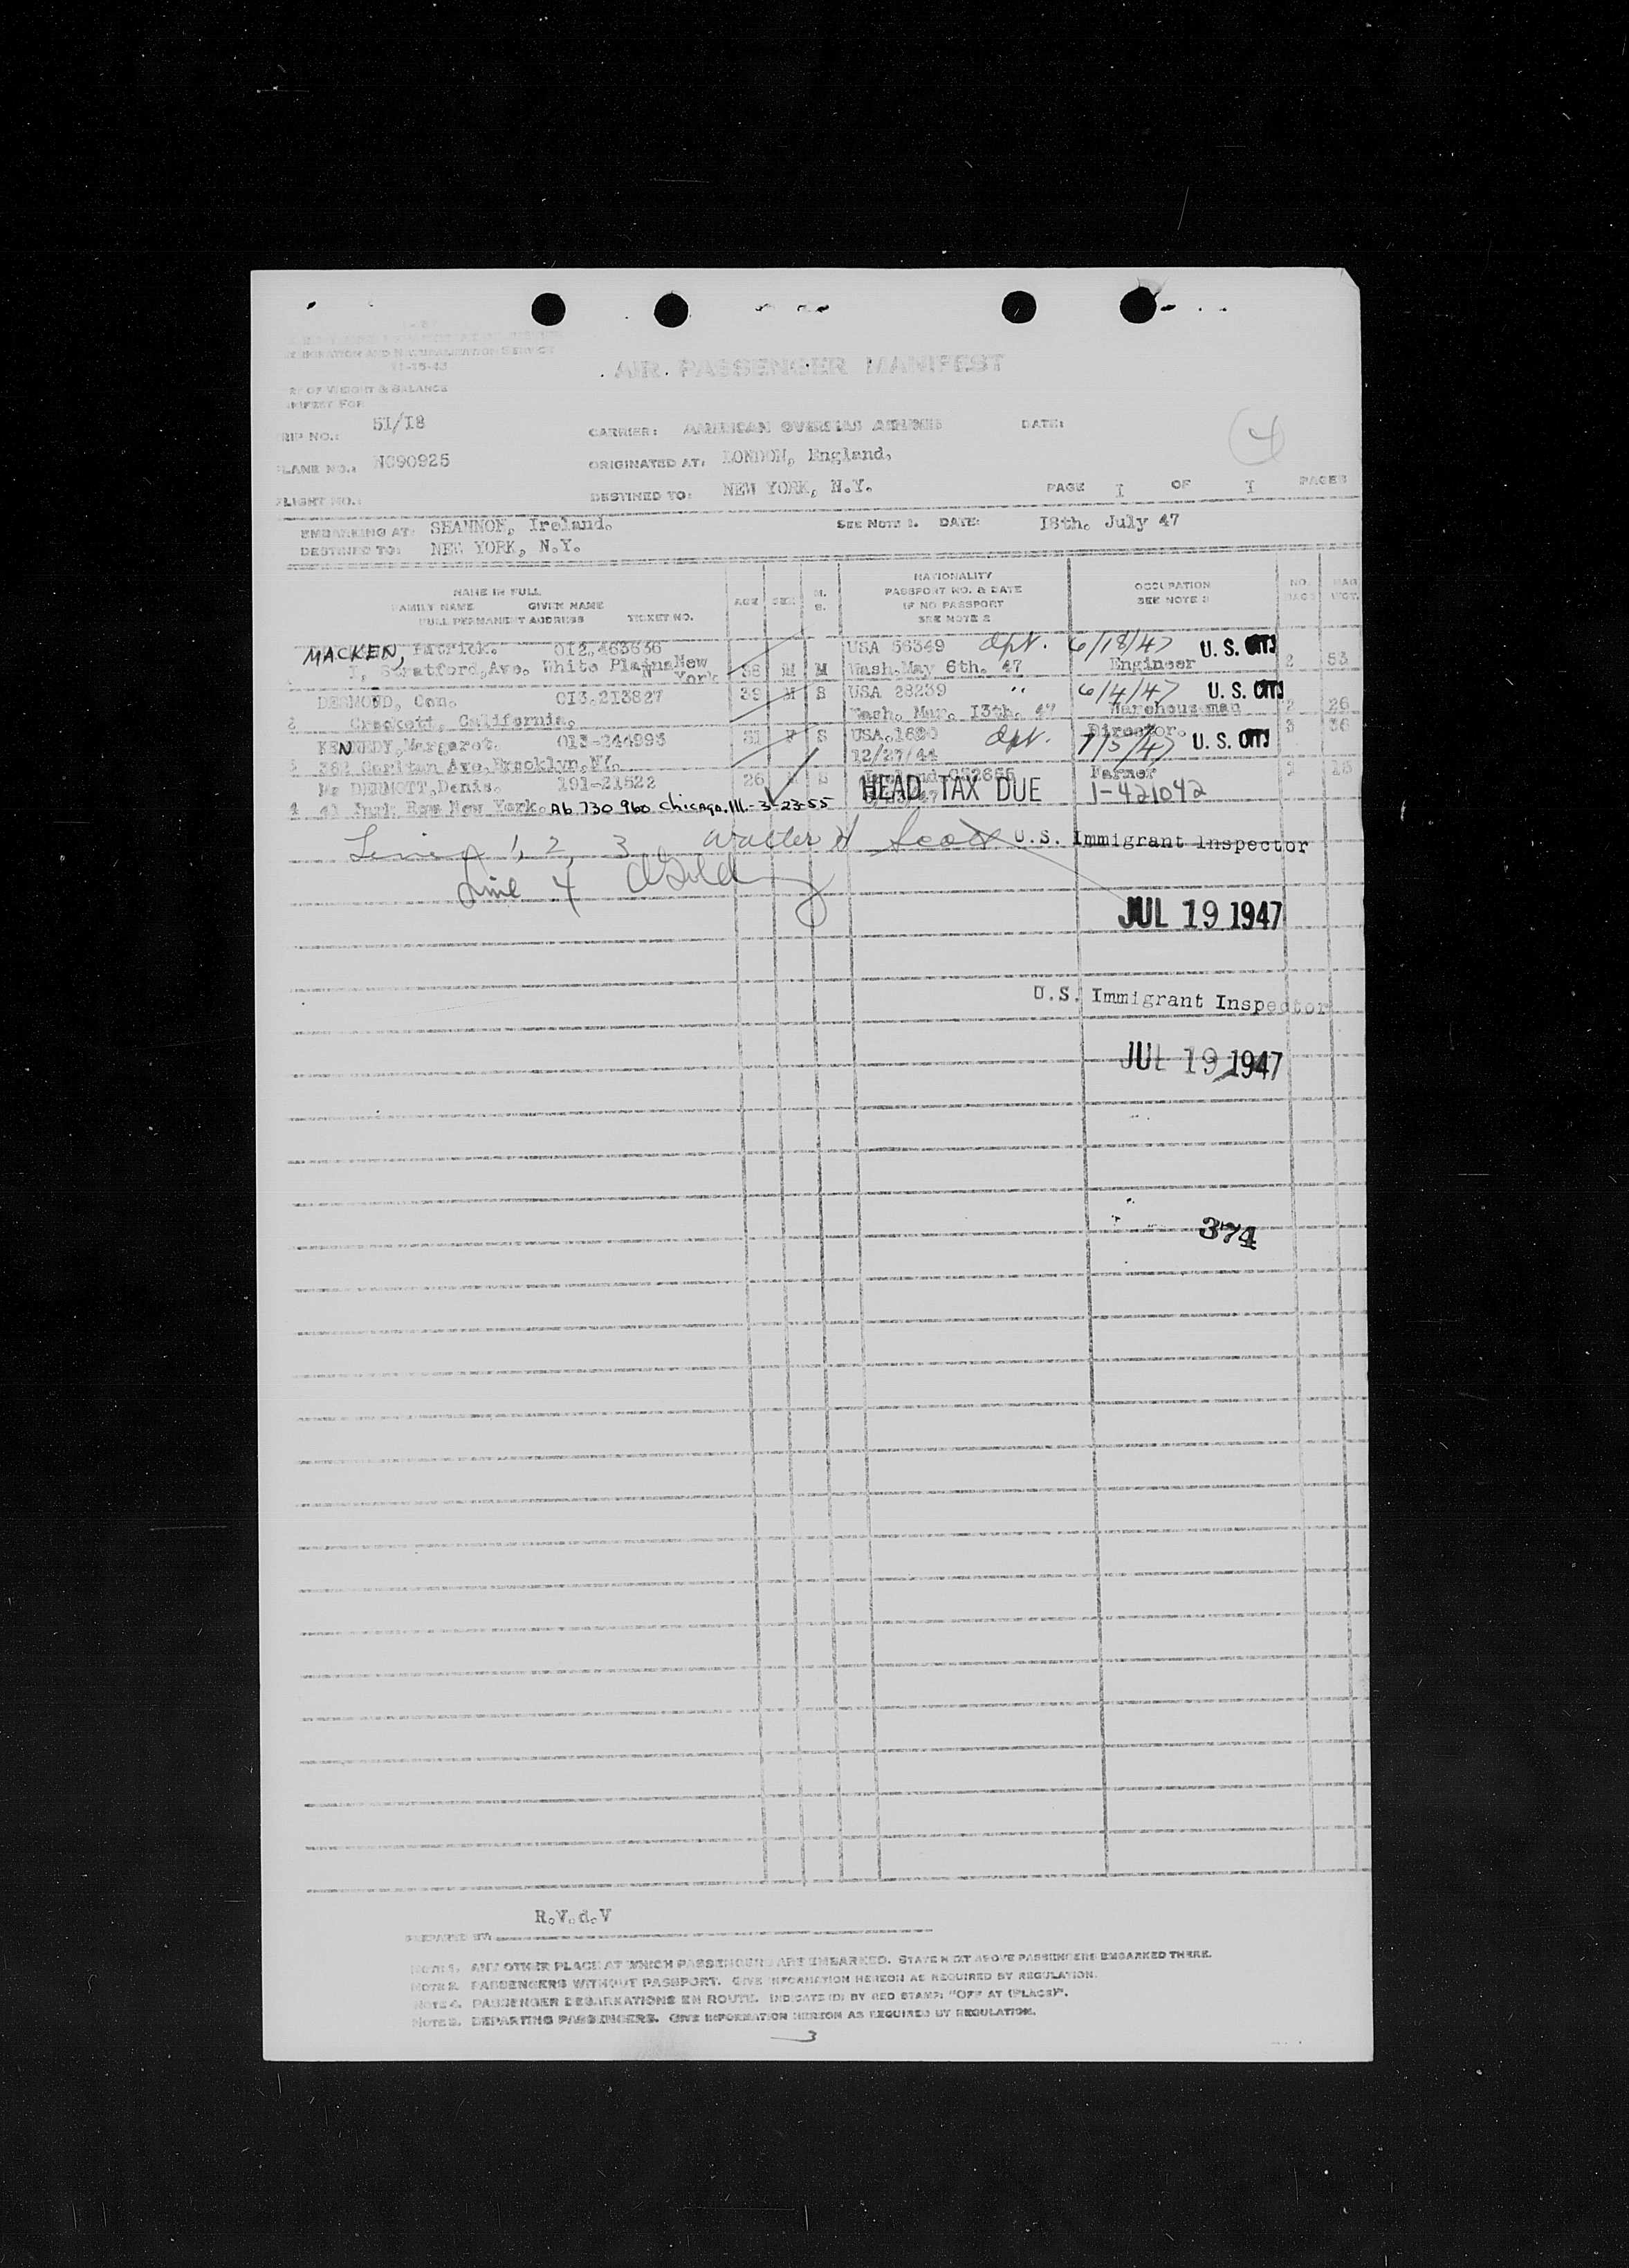 IMMIGRATION AND NATURALIZATION SERVICE
11-15-43
AIR PASSENGER MANIFEST
OF WEIGHT & BALANCE
MANIFEST FOR
TRIP NO.: 51/18 CARRIER: AMERICAN OVERSEAS AIRLINES DATE: 4
PLANE NO.: NC90925 ORIGINATED AT: LONDON, England.
FLIGHT NO.: DESTINED TO: NEW YORK, N.Y. PAGE I OF I PAGES
EMBARKING AT: SHANNON, Ireland. SEE NOTE 1. DATE: I8th. July 47
DESTINED TO: NEW YORK, N.Y.
NAME IN FULL
FAMILY NAME GIVEN NAME
FULL PERMANENT ADDRESS TICKET NO.
AGE SEX M. S.
NATIONALITY
PASSPORT NO. & DATE
IF NO PASSPORT
SEE NOTE 2
OCCUPATION
SEE NOTE 3
NO. BAGS BAG WGT.
MACKEN, Patrick. 012.463636 USA 56349 Dpt. 6/18/47 U.S.
Stratford, Ave. White Plains New York 38 M M Wash. May 6th. 47 Engineer 2 53
DESMOND, Con. 013.213827 39 M S USA 28239 " 6/4/47 U.S.
2 Crockett, California. Wash. Mar. 13th. 47 Warehouseman 2 26
KENNEDY, Margaret. 013-244993 31 F S USA. Dpt. Director. 7/5/47 U.S. 3 36
Ave, Brooklyn, NY. 12/27/44
Mc DERMOTT, Denis. 191-21522 26 M S Farmer
HEAD TAX DUE 1-421042
4 41 Park Row New York. A6 730 960 Chicago. Ill. - 3-23-55
Lines 1, 2, 3 Walter H Scott U.S. Immigrant Inspector
Line 4
JUL 19 1947
U.S. Immigrant Inspector
JUL 19 1947
374
R.V.d.V
PREPARED BY:
NOTE 1. ANY OTHER PLACE AT WHICH PASSENGERS ARE EMBARKED. STATE NEXT ABOVE PASSENGERS EMBARKED THERE.
NOTE 2. PASSENGERS WITHOUT PASSPORT. GIVE INFORMATION HEREON AS REQUIRED BY REGULATION.
NOTE 4. PASSENGER DEBARKATIONS EN ROUTE. INDICATE (D) BY RED STAMP: "OFF AT (PLACE)".
NOTE 3. DEPARTING PASSENGERS. GIVE INFORMATION HEREON AS REQUIRED BY REGULATION.
3